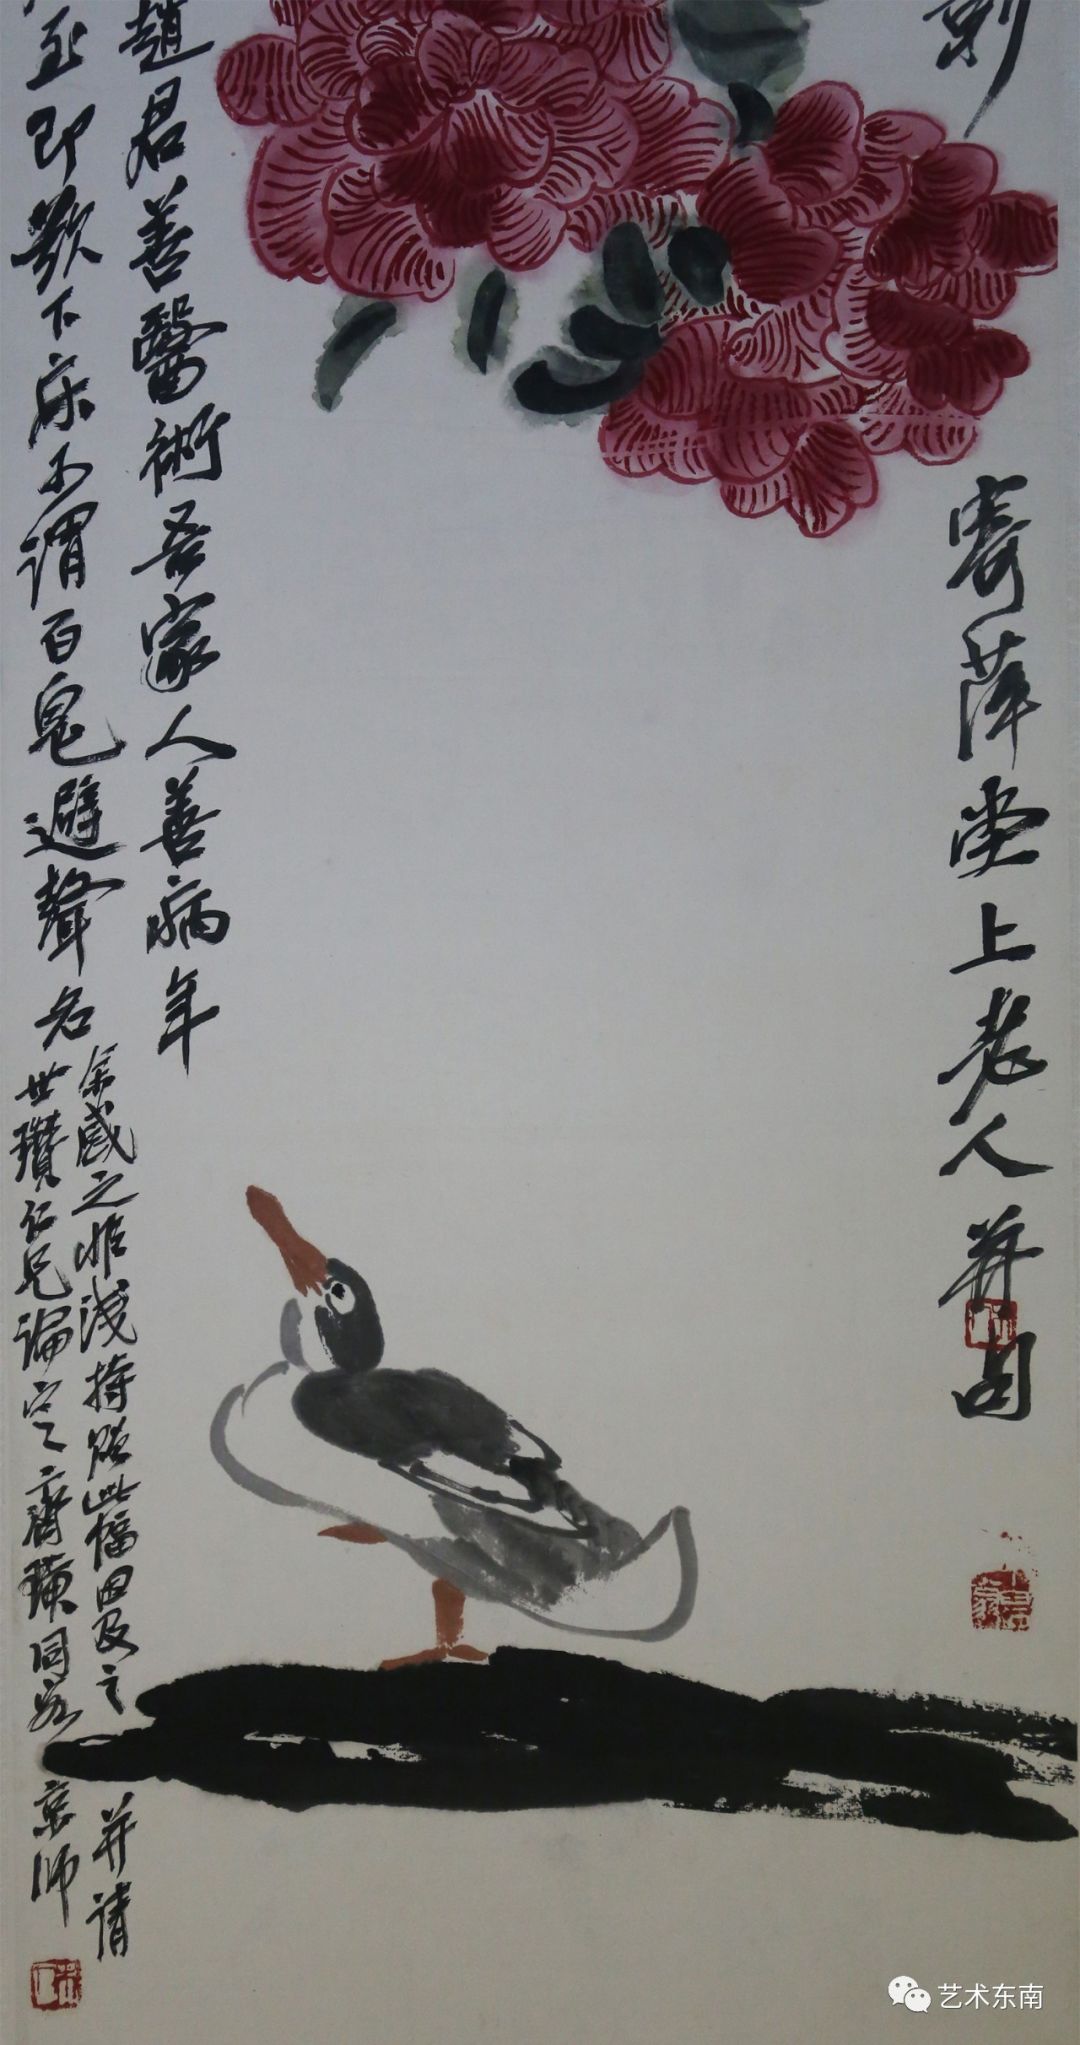 寄萍堂上老人并句
趙君善醫術吾家人善病年
至即歡下床不謂百鬼避聲名
余感之非淺持贈此幅因及之并請
世瓚仁兄論定之齊璜同客京师
艺术东南